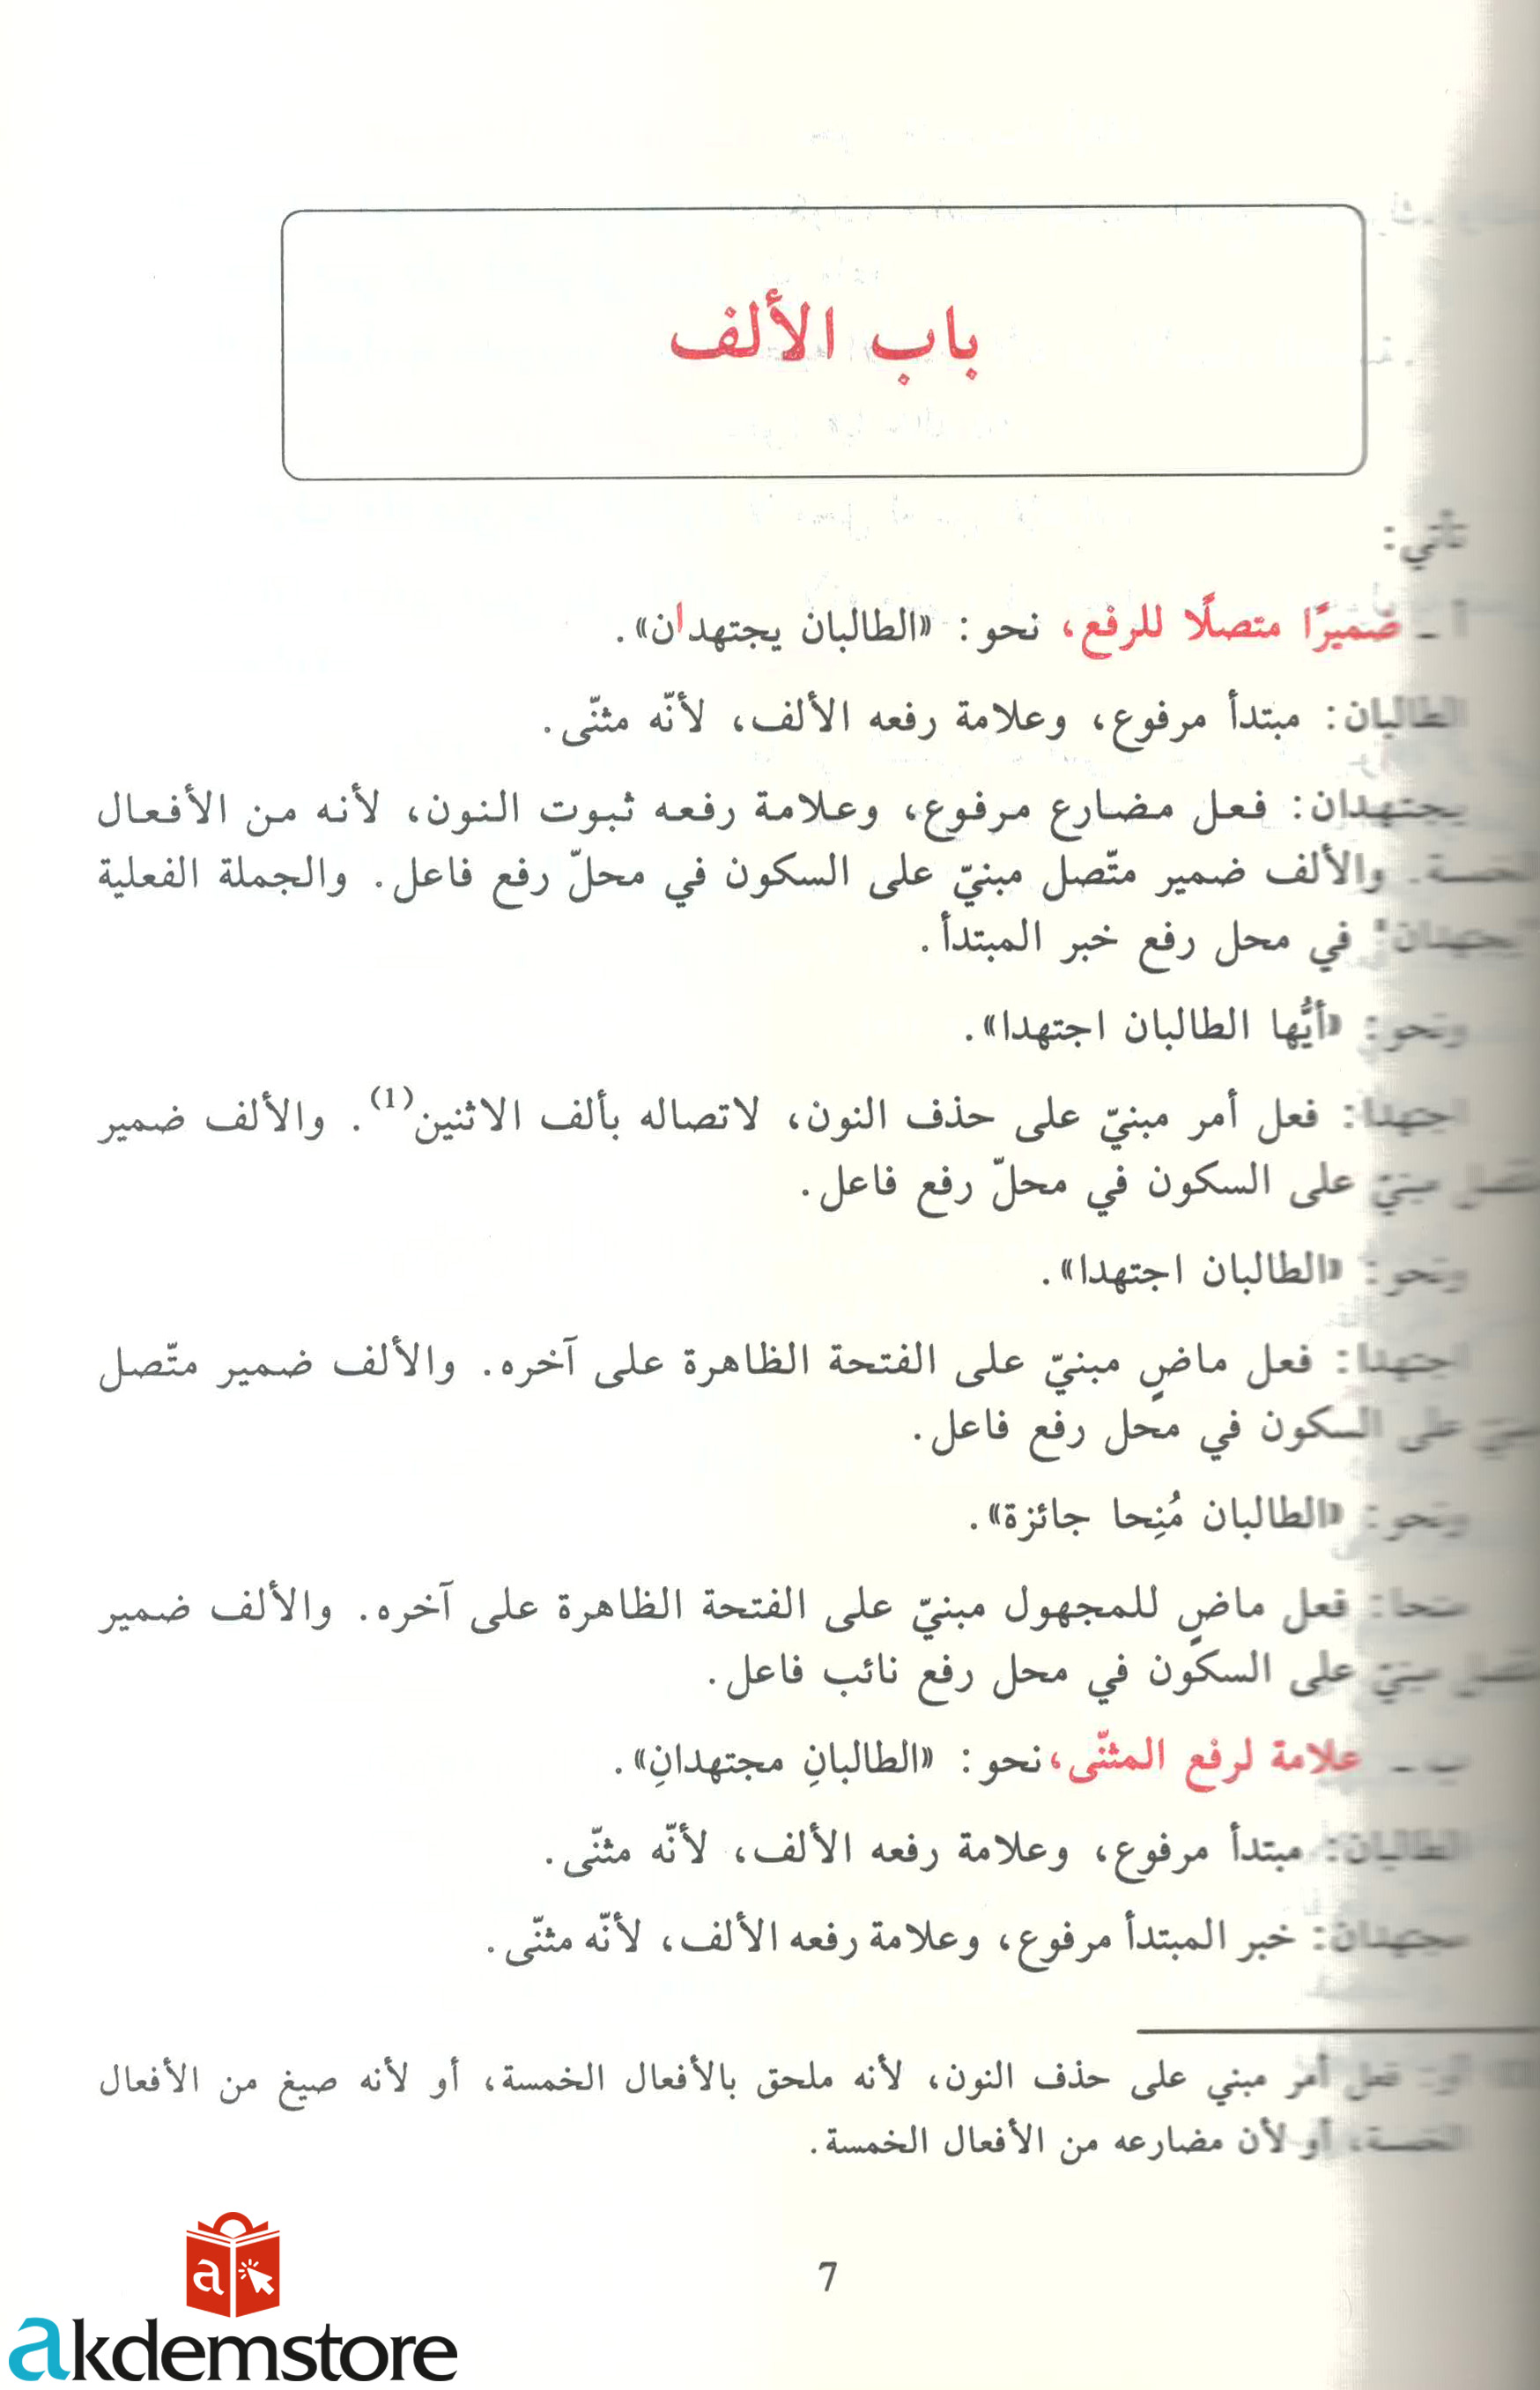 باب الألف
تأتي:
أ ـ ضميرًا متصلًا للرفع، نحو: «الطالبان يجتهدان».
الطالبان: مبتدأ مرفوع، وعلامة رفعه الألف، لأنّه مثنّى.
يجتهدان: فعل مضارع مرفوع، وعلامة رفعه ثبوت النون، لأنه من الأفعال
الخمسة. والألف ضمير متّصل مبنيّ على السكون في محلّ رفع فاعل. والجملة الفعلية
"يجتهدان" في محل رفع خبر المبتدأ.
ونحو: «أيُّها الطالبان اجتهدا».
اجتهدا: فعل أمر مبنيّ على حذف النون، لاتصاله بألف الاثنين(1). والألف ضمير
متصل مبنيّ على السكون في محلّ رفع فاعل.
ونحو: «الطالبان اجتهدا».
اجتهدا: فعل ماضٍ مبنيّ على الفتحة الظاهرة على آخره. والألف ضمير متّصل
مبنيّ على السكون في محل رفع فاعل.
ونحو: «الطالبان مُنِحا جائزة».
منحا: فعل ماضٍ للمجهول مبنيّ على الفتحة الظاهرة على آخره. والألف ضمير
متصل مبنيّ على السكون في محل رفع نائب فاعل.
ب ـ علامة لرفع المثنّى، نحو: «الطالبانِ مجتهدانِ».
الطالبان: مبتدأ مرفوع، وعلامة رفعه الألف، لأنّه مثنّى.
مجتهدان: خبر المبتدأ مرفوع، وعلامة رفعه الألف، لأنّه مثنّى.
فعل أمر مبني على حذف النون، لأنه ملحق بالأفعال الخمسة، أو لأنه صيغ من الأفعال
الخمسة، أو لأن مضارعه من الأفعال الخمسة.
7
a
akdemstore